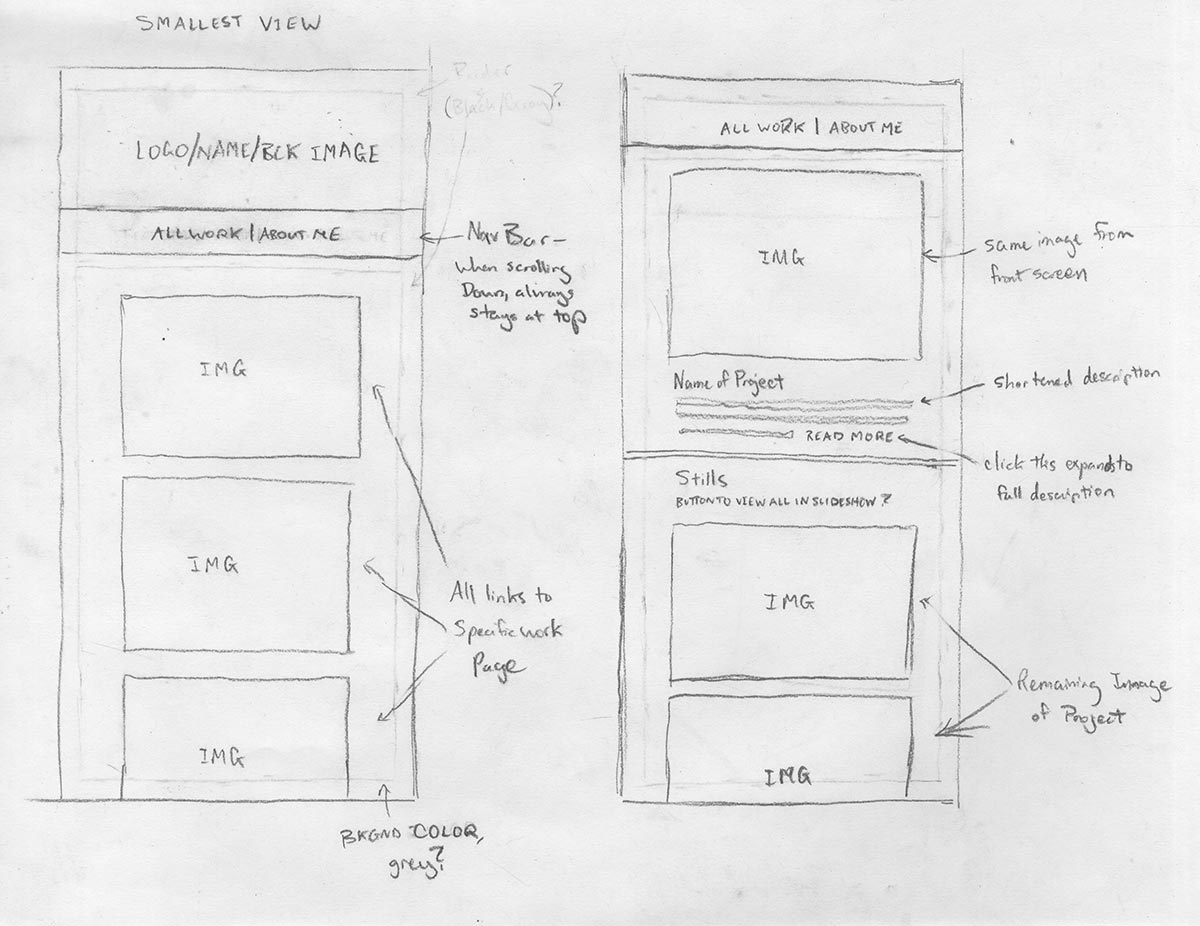 SMALLEST VIEW
LOGO/NAME/BCK IMAGE
ALL WORK | ABOUT ME
Nav Bar -
when scrolling
Down, always
stays at top
IMG
IMG
IMG
All links to
Specific work
Page
BKGND COLOR,
grey?
ALL WORK | ABOUT ME
IMG
same image from
front screen
Name of Project
shortened description
READ MORE
click this expands to
full description
Stills
BUTTON TO VIEW ALL IN SLIDESHOW?
IMG
IMG
Remaining Image
of Project